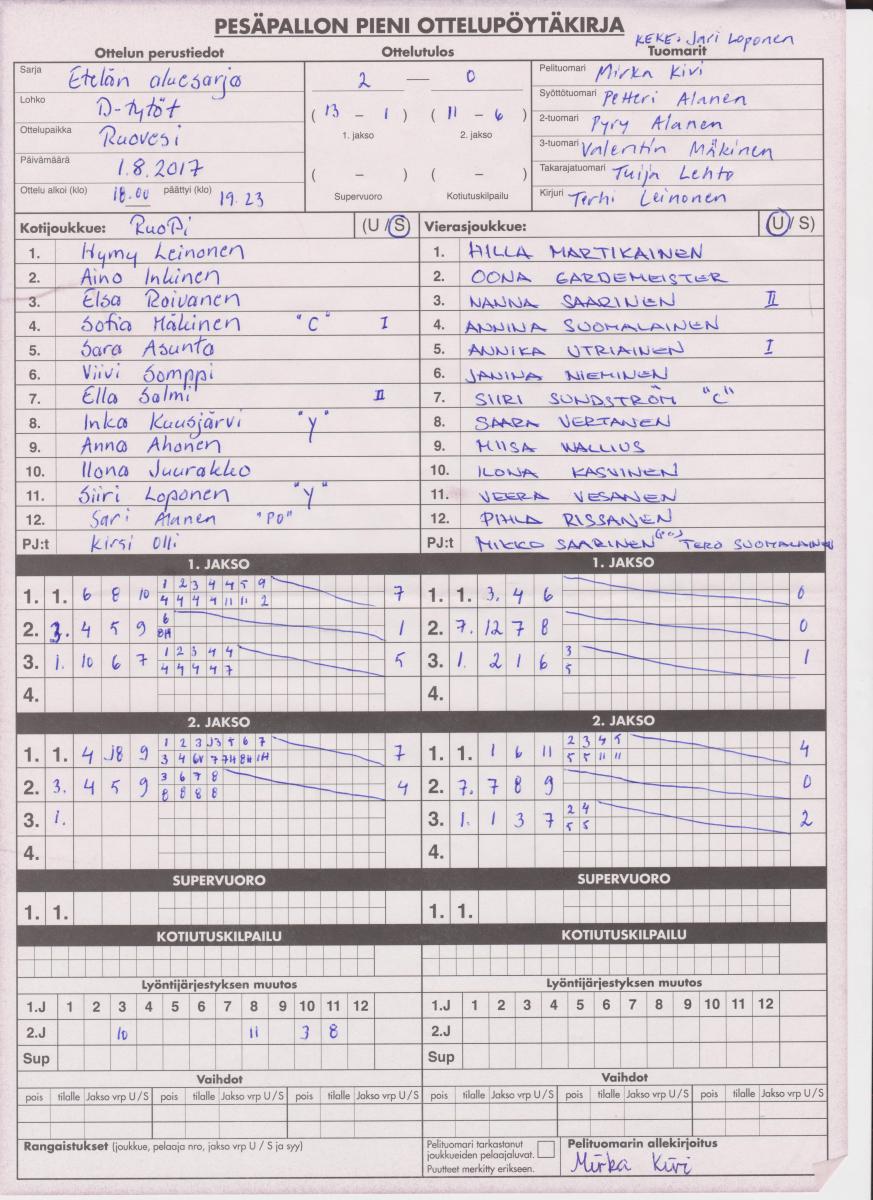 PESÄPALLON PIENI OTTELUPÖYTÄKIRJA
KEKE: Jari Loponen
Ottelun perustiedot Ottelutulos Tuomarit
Sarja Etelän aluesarja
Lohko D-tytöt
Ottelupaikka Ruovesi
Päivämäärä 1.8.2017
Ottelu alkoi (klo) 18.00 päättyi (klo) 19.23
2 — 0
( 13 – 1 ) ( 11 – 6 )
1. jakso 2. jakso
( – ) ( – )
Supervuoro Kotiutuskilpailu
Pelituomari Mirka Kivi
Syöttötuomari Petteri Alanen
2-tuomari Pyry Alanen
3-tuomari Valentin Mäkinen
Takarajatuomari Tuija Lehto
Kirjuri Terhi Leinonen
Kotijoukkue: RuoPi (U / S)
1. Hymy Leinonen
2. Aino Inkinen
3. Elsa Roivanen
4. Sofia Mäkinen "C" I
5. Sara Asunta
6. Viivi Somppi
7. Ella Salmi II
8. Inka Kuusjärvi "Y"
9. Anna Ahonen
10. Ilona Juurakko
11. Siiri Loponen "Y"
12. Sari Alanen "PO"
PJ:t Kirsi Olli
Vierasjoukkue: (U / S)
1. HILLA MARTIKAINEN
2. OONA GARDEMEISTER
3. NANNA SAARINEN II
4. ANNINA SUOMALAINEN
5. ANNIKA UTRIAINEN I
6. JANINA NIEMINEN
7. SIIRI SUNDSTRÖM "C"
8. SAARA VERTANEN
9. MIISA WALLIUS
10. ILONA KASVINEN
11. VEERA VESANEN
12. PIHLA RISSANEN
PJ:t MIKKO SAARINEN (PO) TERO SUOMALAINEN
1. JAKSO
1. 1. 6 8 10 1 2 3 4 4 5 9 7
4 4 4 4 11 11 2
2. 3. 4 5 9 6 1
8H
3. 1. 10 6 7 1 2 3 4 4 5
4 4 4 4 7
4.
1. JAKSO
1. 1. 3. 4 6 0
2. 7. 12 7 8 0
3. 1. 2 1 6 3 1
5
4.
2. JAKSO
1. 1. 4 J8 9 1 2 3 J3 5 6 7 7
3 4 6V 7 7H 8H 1H
2. 3. 4 5 9 3 6 7 8 4
8 8 8 8
3. 1.
4.
2. JAKSO
1. 1. 1 6 11 2 3 4 5 4
5 5 11 11
2. 7. 7 8 9 0
3. 1. 1 3 7 2 4 2
5 5
4.
SUPERVUORO
1. 1.
SUPERVUORO
1. 1.
KOTIUTUSKILPAILU
KOTIUTUSKILPAILU
Lyöntijärjestyksen muutos
1.J 1 2 3 4 5 6 7 8 9 10 11 12
2.J 10 11 3 8
Sup
Lyöntijärjestyksen muutos
1.J 1 2 3 4 5 6 7 8 9 10 11 12
2.J
Sup
Vaihdot
pois tilalle Jakso vrp U / S pois tilalle Jakso vrp U / S pois tilalle Jakso vrp U / S
Vaihdot
pois tilalle Jakso vrp U / S pois tilalle Jakso vrp U / S pois tilalle Jakso vrp U / S
Rangaistukset (joukkue, pelaaja nro, jakso vrp U / S ja syy)
Pelituomari tarkastanut
joukkueiden pelaajaluvat.
Puutteet merkitty erikseen.
Pelituomarin allekirjoitus
Mirka Kivi